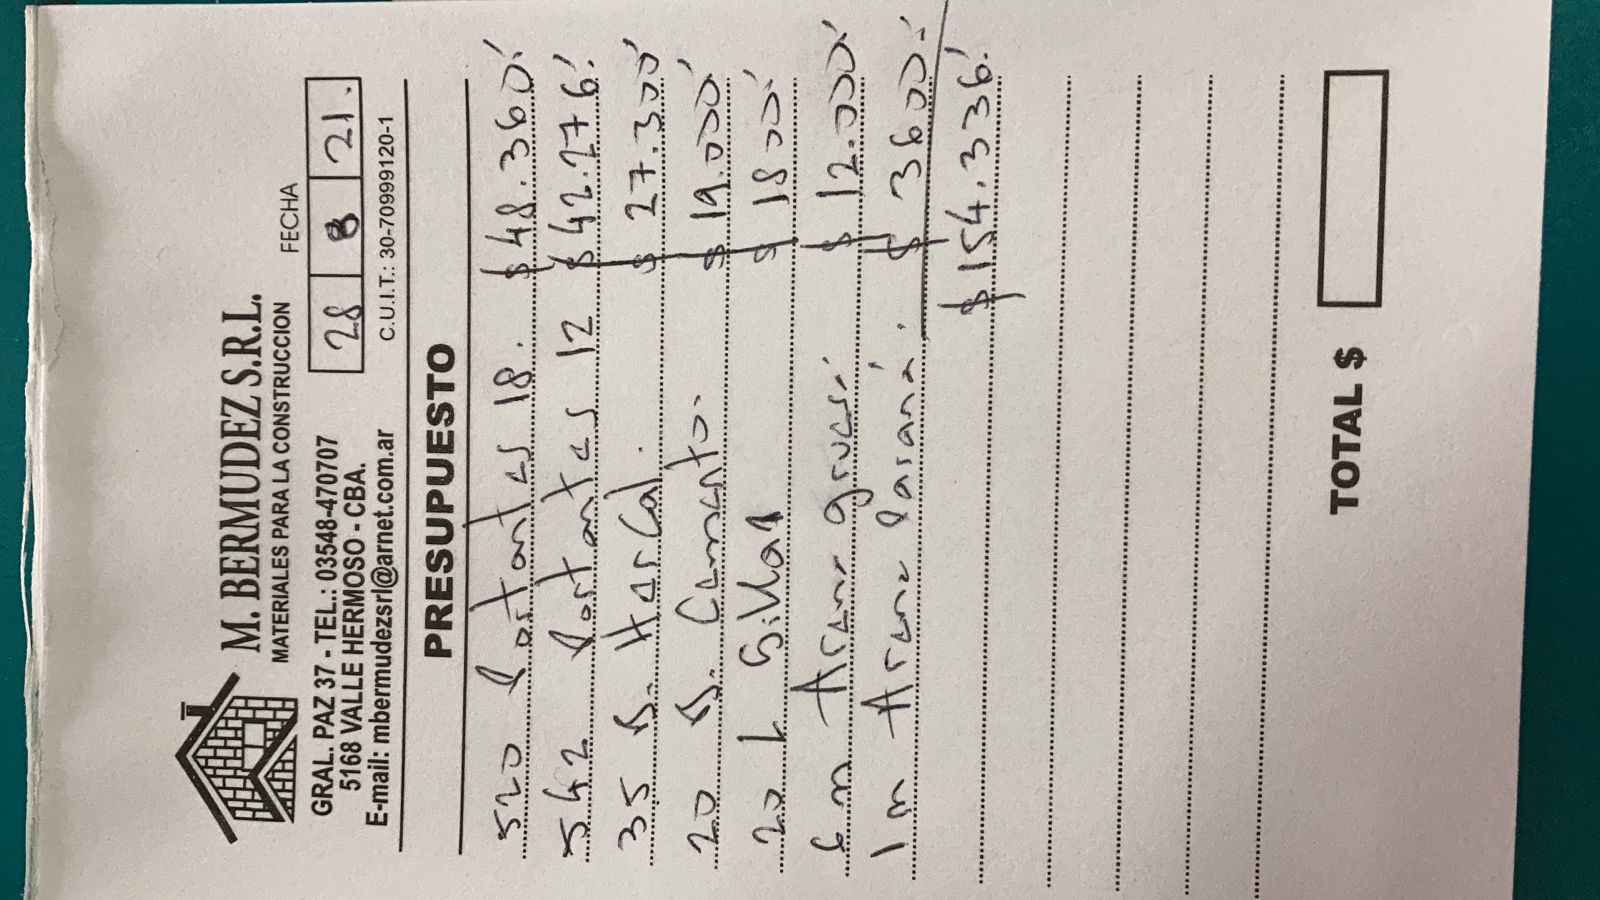 M. BERMUDEZ S.R.L.
MATERIALES PARA LA CONSTRUCCION
GRAL. PAZ 37 - TEL.: 03548-470707
5168 VALLE HERMOSO - CBA.
E-mail: mbermudezsrl@arnet.com.ar
FECHA
28 8 21.
C.U.I.T.: 30-70999120-1
PRESUPUESTO
520 Portantes 18. $ 48.360.
542 Portantes 12 $ 42.276.
35 B. Hercal. $ 27.300
20 B. Cemento. $ 19.000
20 L $ 1800
6 m Arena gruesa $ 12.000
1 m Arena Parana. $ 3600.
$ 154.336.
TOTAL $